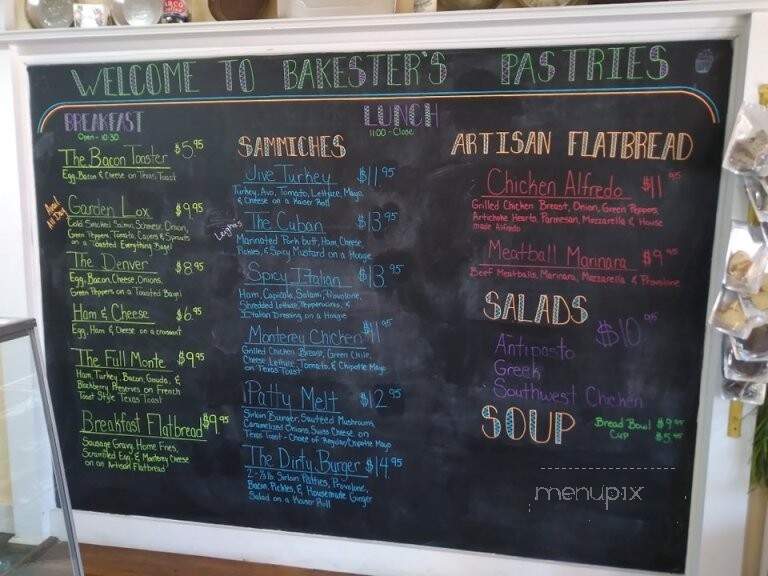 WELCOME TO BAKESTER'S PASTRIES
BREAKFAST
Open - 10:30
The Bacon Toaster $5.95
Egg, Bacon & Cheese on Texas Toast
Garden Lox $9.95
Cold Smoked Salmon, Schmear, Onion,
Green Peppers, Tomato, Capers & Sprouts
on a Toasted Everything Bagel
The Denver $8.95
Egg, Bacon, Cheese, Onions,
Green Peppers on a Toasted Bagel
Ham & Cheese $6.95
Egg, Ham & Cheese on a croissant
The Full Monte $9.95
Ham, Turkey, Bacon, Gouda, &
Blackberry Preserves on French
Toast Style Texas Toast
Breakfast Flatbread $9.95
Sausage Gravy, Home Fries,
Scrambled Egg, & Monterey Cheese
on an Artisan Flatbread
LUNCH
11:00 - Close
SAMMICHES
Jive Turkey $11.95
Turkey, Avo, Tomato, Lettuce, Mayo
& Cheese on a Kaiser Roll
The Cuban $13.95
Marinated Pork butt, Ham, Cheese,
Pickles, & Spicy Mustard on a Hoagie
Spicy Italian $13.95
Ham, Capicola, Salami, Provolone,
Shredded Lettuce, Pepperoncini, &
Italian Dressing on a Hoagie
Monterey Chicken $11.95
Grilled Chicken Breast, Green Chile,
Cheese, Lettuce, Tomato, & Chipotle Mayo
on Texas Toast
Patty Melt $12.95
Sirloin Burger, Sauteed Mushrooms,
Caramelized Onions, Swiss Cheese on
Texas Toast - Choice of Regular/Chipotle Mayo
The Dirty Burger $14.95
2 - 1/3 lb. Sirloin Patties, Provolone,
Bacon, Pickles, & Housemade Ginger
Salad on a Kaiser Roll
ARTISAN FLATBREAD
Chicken Alfredo $11.95
Grilled Chicken Breast, Onion, Green Peppers,
Artichoke Hearts, Parmesan, Mozzarella & House
made Alfredo
Meatball Marinara $9.95
Beef Meatballs, Marinara, Mozzarella & Provolone
SALADS $10.95
Antipasto
Greek
Southwest Chicken
SOUP
Bread Bowl $9.95
Cup $5.95
menupix